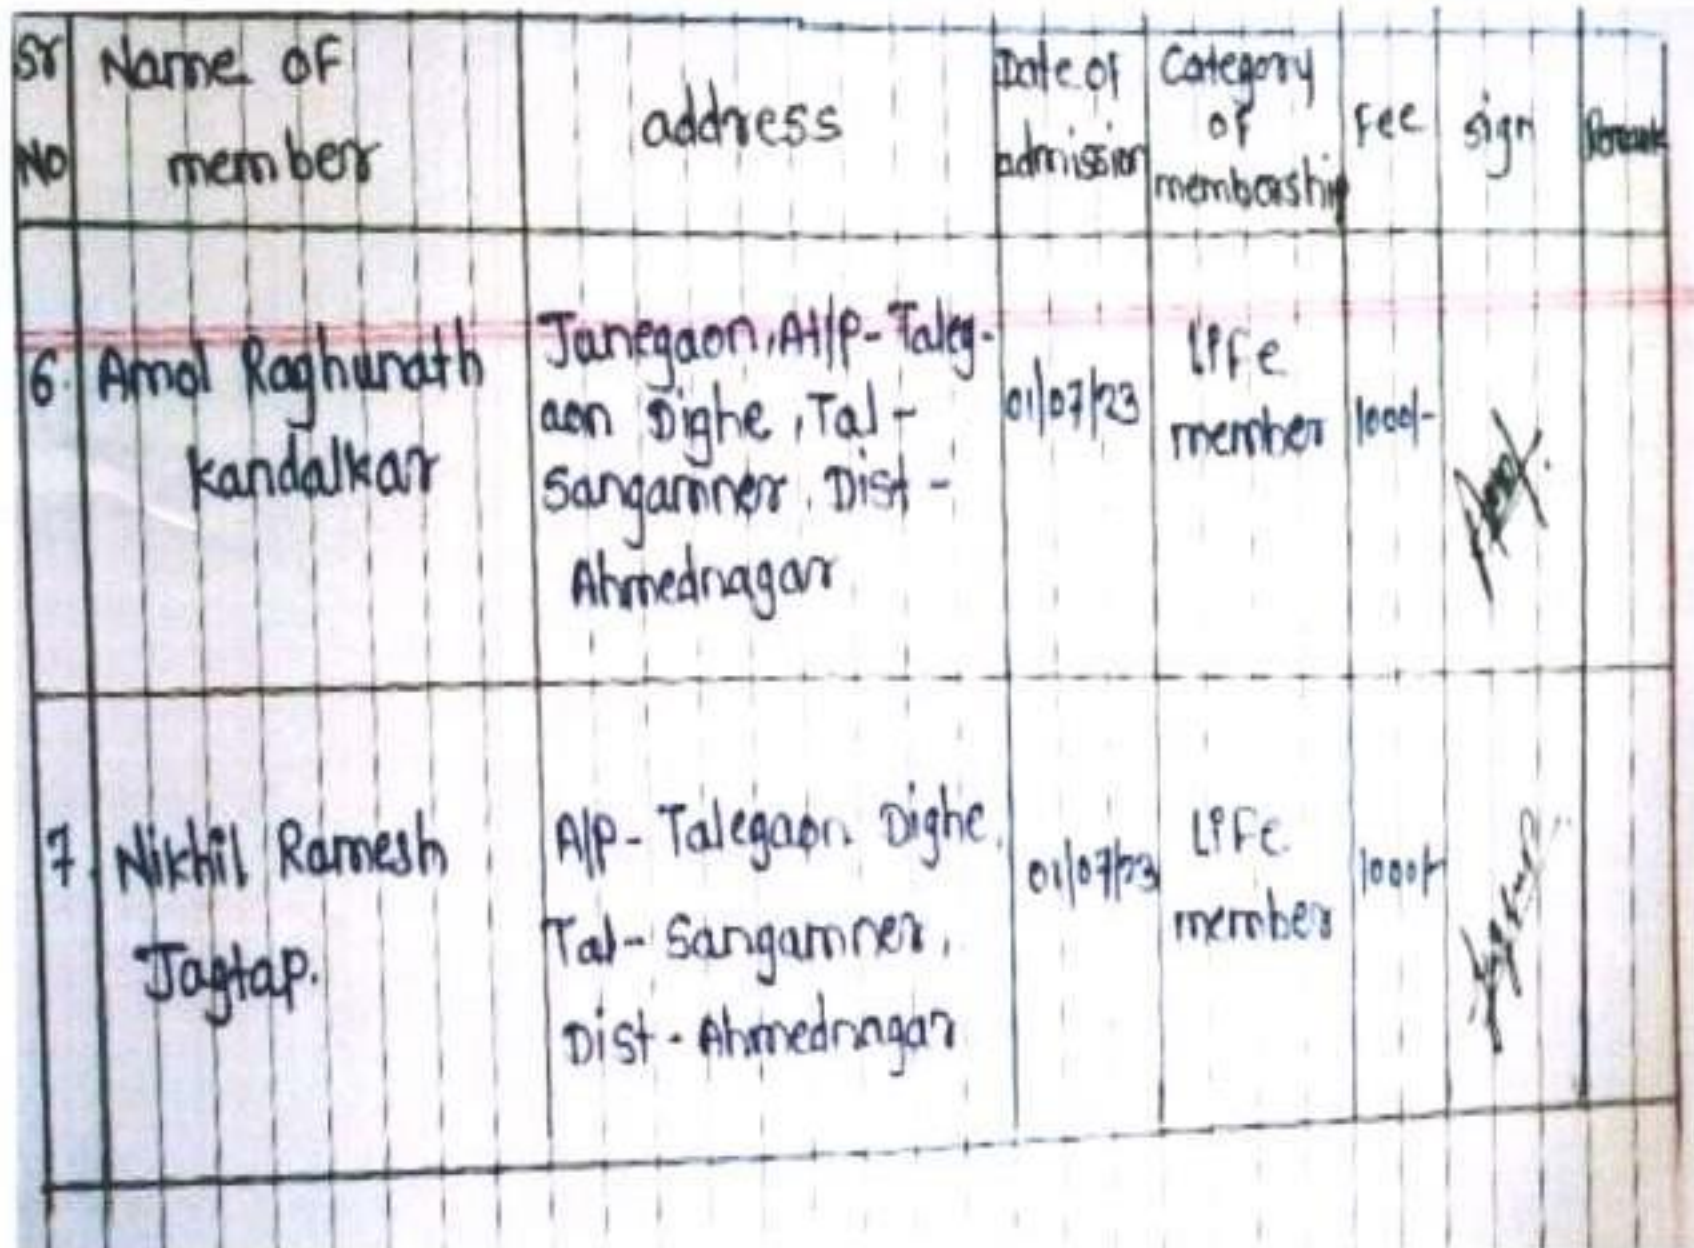 Sr No
Name of member
address
Date of admission
Category of membership
Fee
sign
Remark
6. Amol Raghunath
kandalkar
Janegaon, At/p- Taleg-
aon Dighe, Tal-
Sangamner, Dist-
Ahmednagar
01/07/23
Life
member
1000/-
7. Nikhil Ramesh
Jagtap.
A/p- Talegaon Dighe,
Tal- Sangamner,
Dist- Ahmednagar
01/07/23
Life
member
1000/-